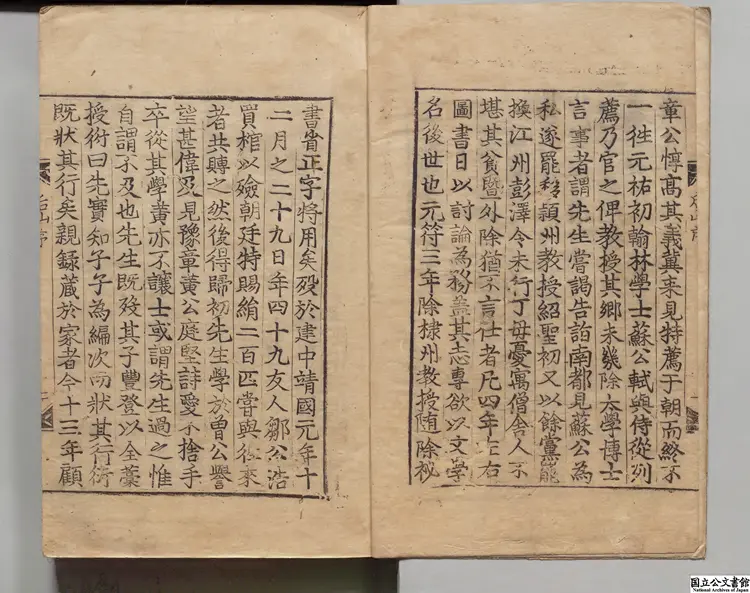 章公惇高其義冀来見特薦于朝而終不
一徃元祐初翰林學士蘇公軾與侍從列
薦乃官之俾教授其鄉未幾除太學博士
言事者謂先生嘗謁告詣南都見蘇公為
私遂罷移頴州教授紹聖初又以餘黨罷
換江州彭澤令未行丁母憂寓僧舎人不
堪其貧曁外除猶不言仕者凡四年左右
圖書日以討論為務盖其志專欲以文學
名後世也元符三年除棣州教授随除秘
書省正字將用矣殁於建中靖國元年十
二月之二十九日年四十九友人鄒公浩
買棺以殮朝廷特賜絹二百匹嘗與徃来
者共賻之然後得歸初先生學於曾公譽
望甚偉及見豫章黄公庭堅詩愛不捨手
卒從其學黄亦不讓士或謂先生過之惟
自謂不及也先生既殁其子豐登以全藁
授衍曰先實知子子為編次而狀其行衍
既狀其行矣親録蔵於家者今十三年顧
后山序
国立公文書館
National Archives of Japan